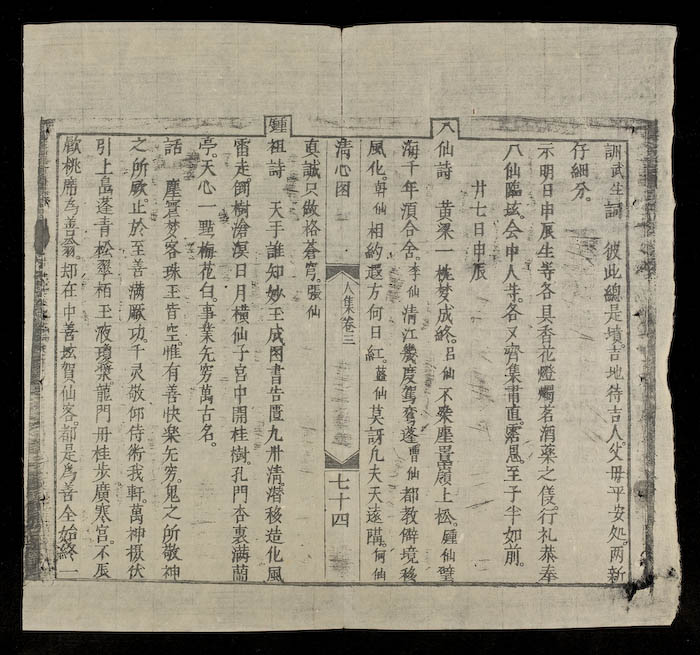 訓武生詞　彼此總是墳吉地待吉人父母平安処。两新
仔細分。
示明日申辰生等各具香花燈燭茗酒藥之儀。行礼恭奉
八仙臨玆。会中人等。各又齊集肅直。露恩。至子半如前。
廿七日申辰
八仙詩　黄梁一枕梦成終。吕仙不染塵罥頂上松。鍾仙壁
海千年須合舍。李仙清江幾度駕奪蓬曹仙都教僻境移
風化。韓仙相約遐方何日紅。藍仙莫訝凢夫天遠隔。何仙
真誠只做格蒼穹。張仙
清心图　人集卷三　七十四
鍾祖詩　天手誰知妙玉成图書告匱九卅清。潛移造化風
雷走。倒樹滄溟日月横仙子宫中開桂樹。孔門杏裏满蘭
亭。天心一點梅花白。事業旡穷萬古名。
話　塵寰梦客珠玉皆空惟有善快樂旡穷。鬼之所敬神
之所歆。止於至善满厥功。千灵敬仰侍術我軒。萬神摄伏
引上島蓬青松翠栢玉液瓊漿。龍門丹桂步廣寒宫。不辰
歐桃席為善翁。却在中善坛賀仙客。都是為善全始終一